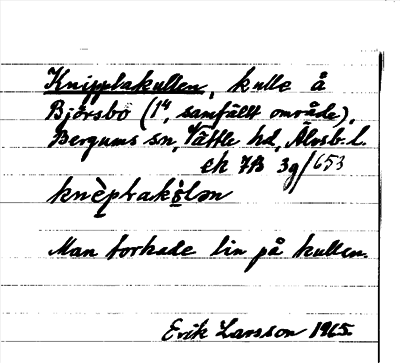 Knipplakullen, kulle å
Björsbo (1⁴, samfällt område),
Bergums sn, Vättle hd, Älvsb. l.
ek 7B 3g/653
knèplakùlən
Man torkade lin på kullen.
Erik Larsson 1965.